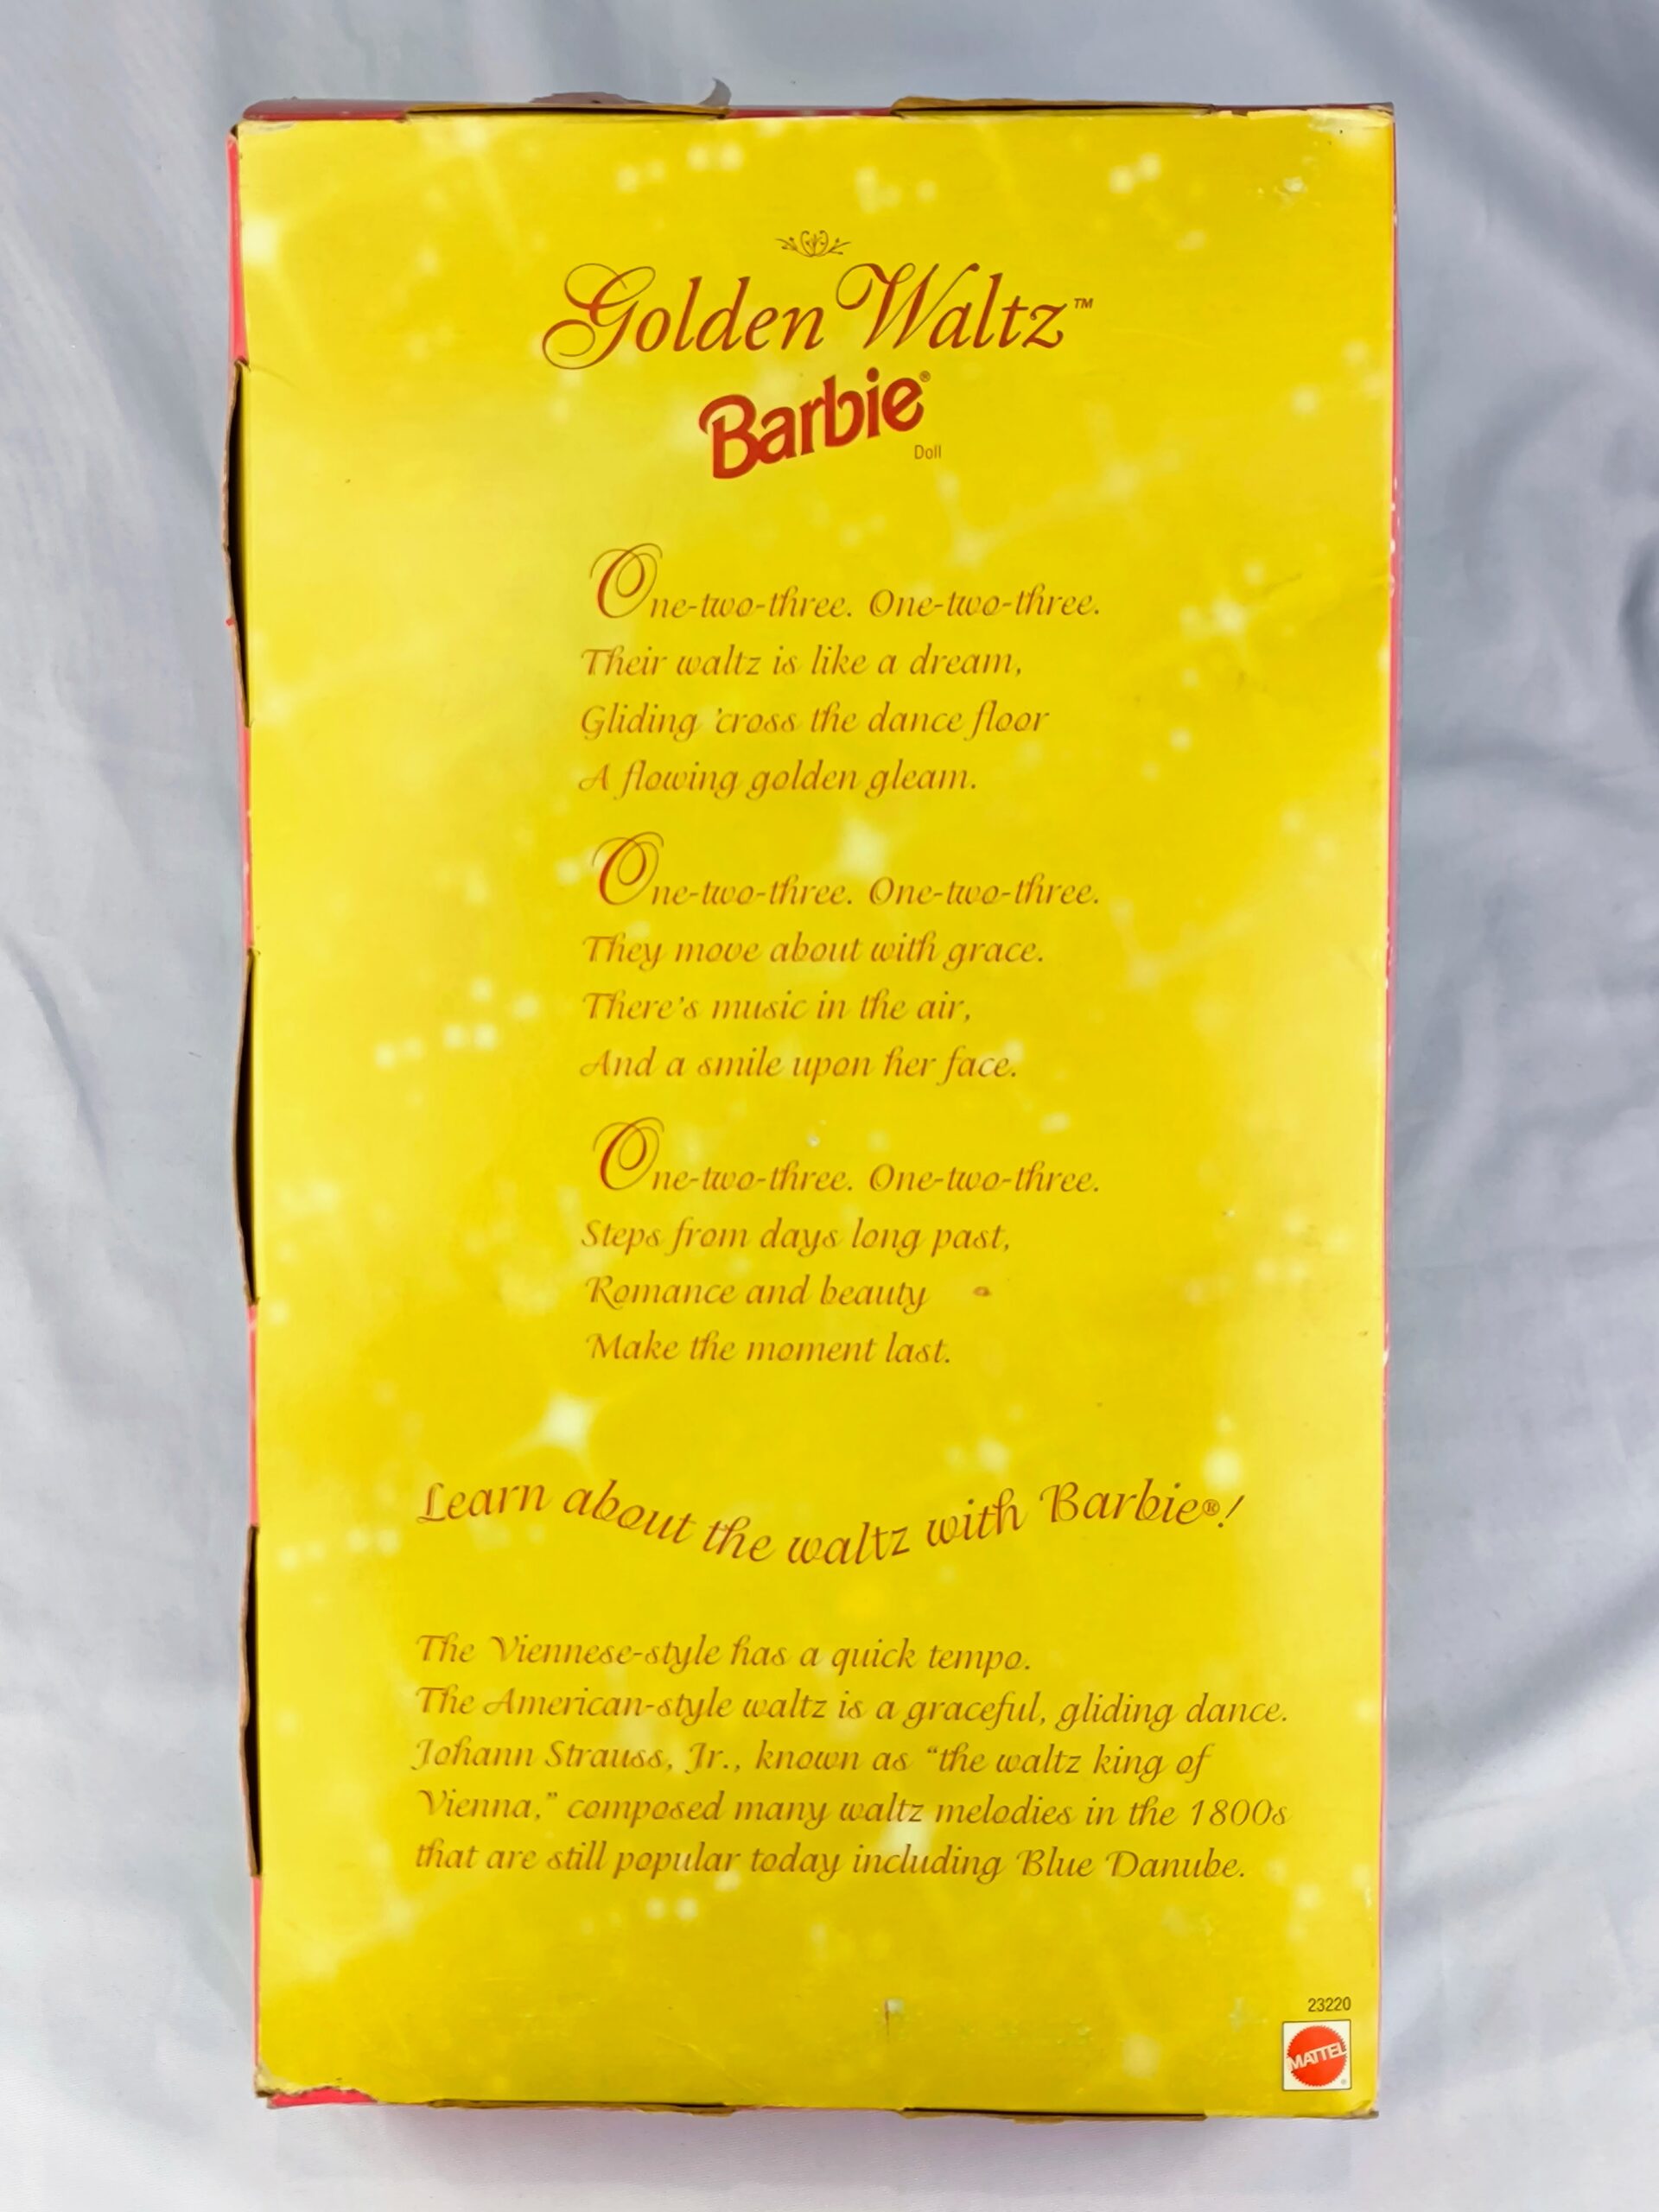 Golden Waltz™
Barbie®
Doll
One-two-three. One-two-three.
Their waltz is like a dream,
Gliding 'cross the dance floor
A flowing golden gleam.
One-two-three. One-two-three.
They move about with grace.
There's music in the air,
And a smile upon her face.
One-two-three. One-two-three.
Steps from days long past,
Romance and beauty
Make the moment last.
Learn about the waltz with Barbie®!
The Viennese-style has a quick tempo.
The American-style waltz is a graceful, gliding dance.
Johann Strauss, Jr., known as “the waltz king of
Vienna,” composed many waltz melodies in the 1800s
that are still popular today including Blue Danube.
23220
MATTEL
®